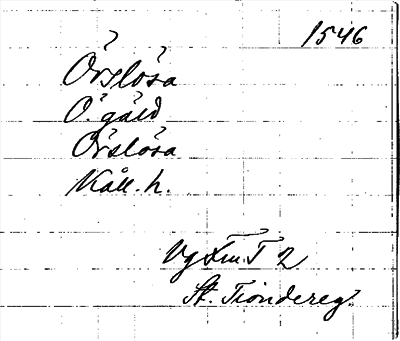 1546
Örslösa
Ö. gäld
Örslösa
Kåll. h.
Vg Fm. T 2
St. Tiondereg.